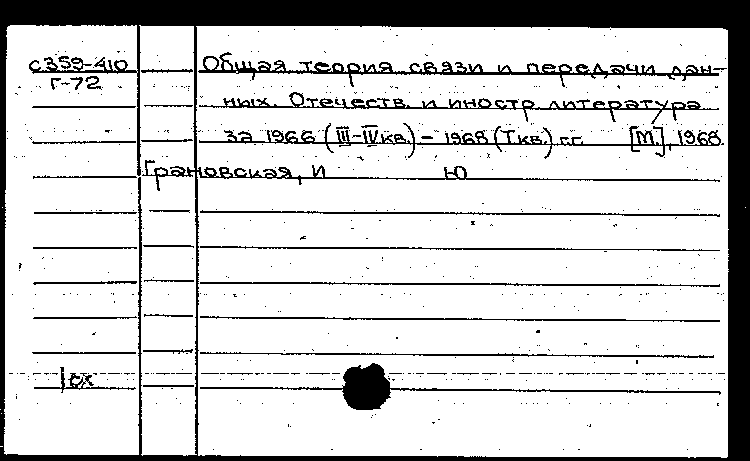 с359-410 Общая теория связи и передачи дан-
Г-72
ных. Отечеств. и иностр. литература
за 1966 (III-IV кв.) - 1968 (I кв.) г.г. [М.], 1968.
Грановская, И Ю
1 эх